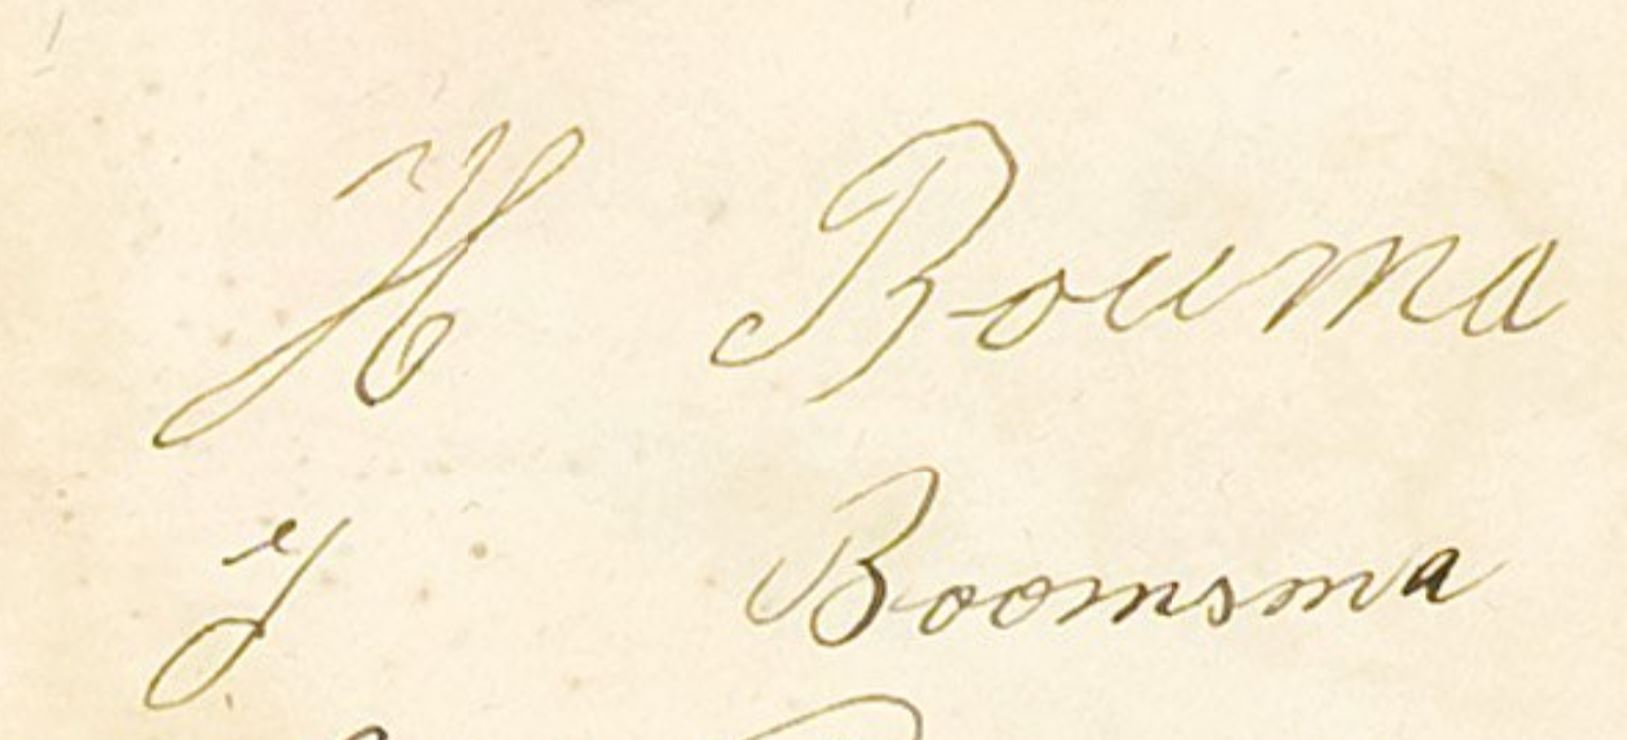 H Bouma
J Boomsma